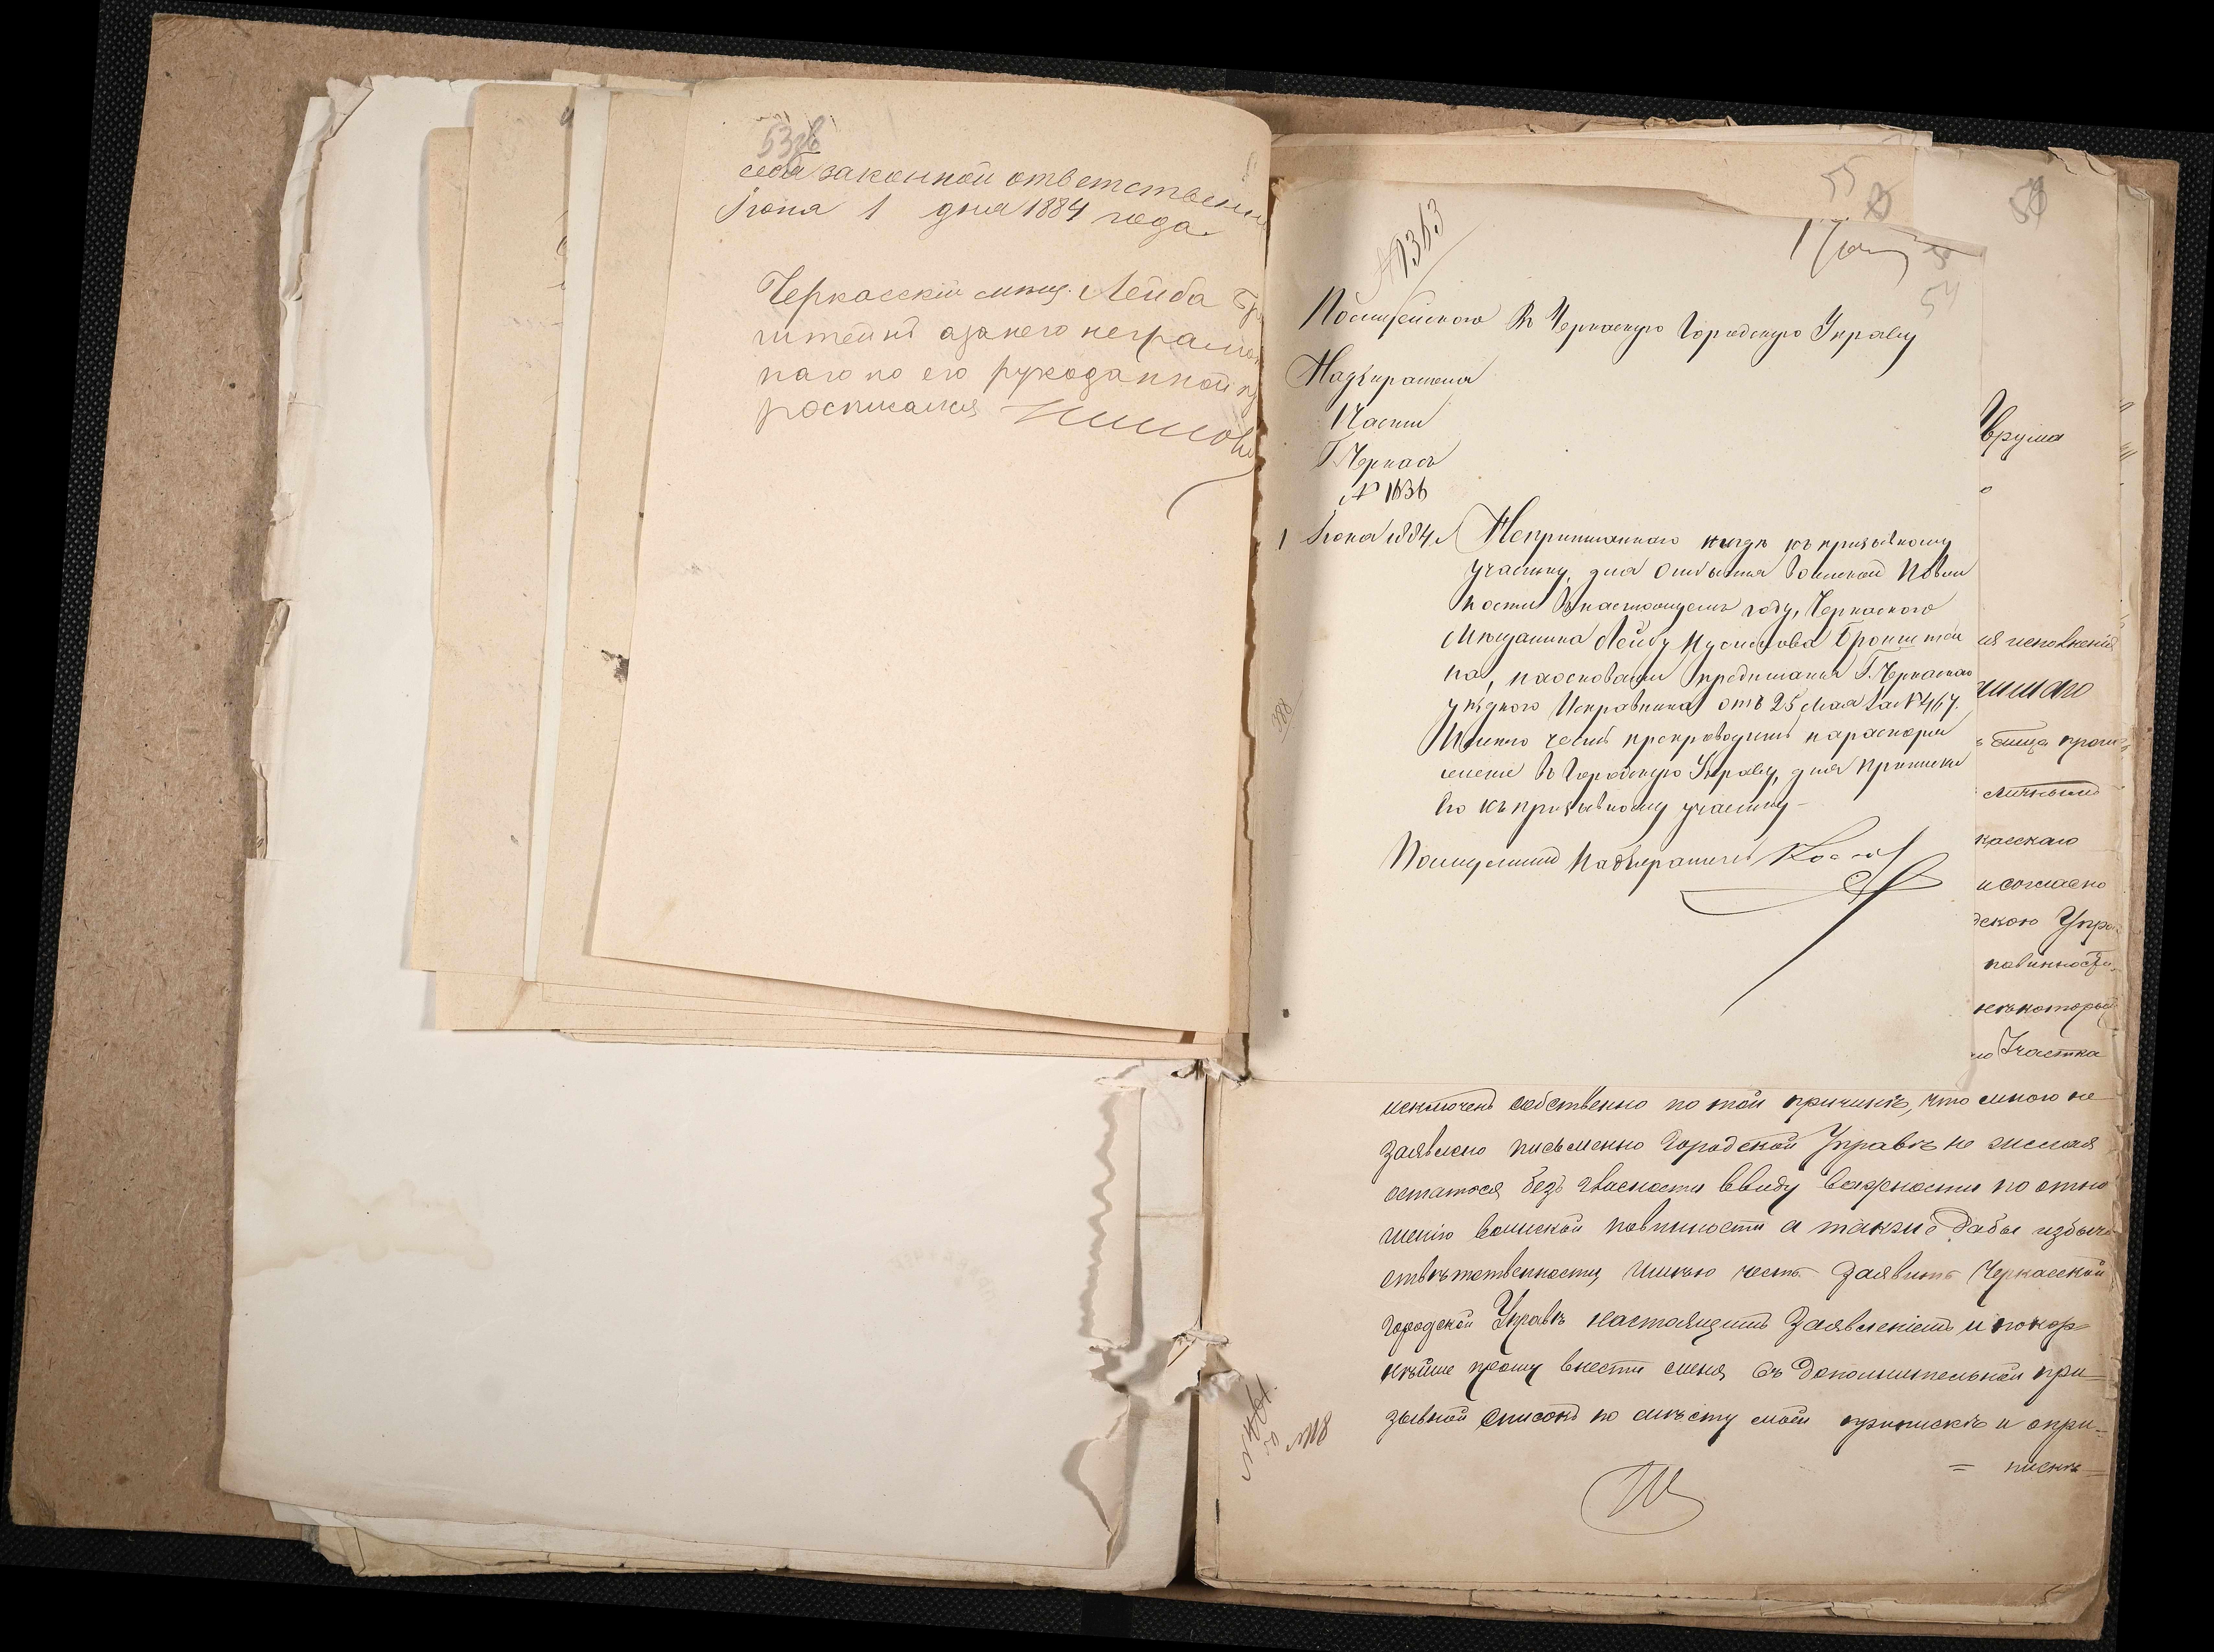 53 зв
себя законной ответственн
Іюня 1 дня 1884 года
Черкасскій мѣщ. Лейба Бр
штейнъ а за него неграмот
наго по его рукоданной п
росписался
№ 1363
55
54
Въ Черкаскую Городскую Управу
Надзирателя
1 Части
Г. Черкасъ
№ 1636
1 Іюня 1884 г.
Неприписаннаго нигдѣ къ призывному
участку, для отбытія Воинской Повин
ности въ настоящемъ году, Черкаского
Мѣщанина Лейбу Бронштей
на, на основаніи предписанія Г. Черкаскаго
уѣзднаго Исправника отъ 25 Мая за № 467.
Имѣю честь препроводить на распоря
женіе въ Городскую Управу, для приписки
его къ призывному участку
Надзиратель
388
Вруша
ія исполненія
личными
касскаго
и согласно
дскою Упра
повинности
Участка
исключенъ собственно по той причинѣ, что мною не
заявлено письменно Городской Управѣ не желая
остатося безъ гласности ввиду важности по отно
шенію воинской повинности а также дабы избѣчь
отвѣтственности, имѣю честь заявить Черкасской
городской Управѣ настоящимъ заявленіемъ и покор
нѣйше прошу внести меня въ дополнительной при=
зывной списокъ по мѣсту моей приписки и о при=
= пискѣ =
№ 18